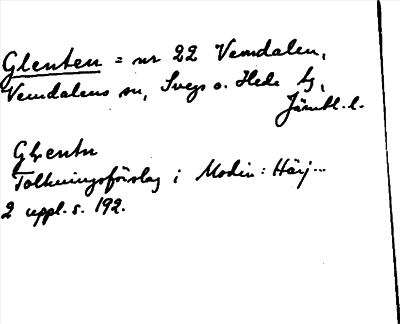 Glenten = nr 22 Vemdalen,
Vemdalens sn, Svegs o. Hede tg,
Jämtl. l.
Glentn
Tolkningsförslag i Modin: Härj...
2 uppl. s. 192.